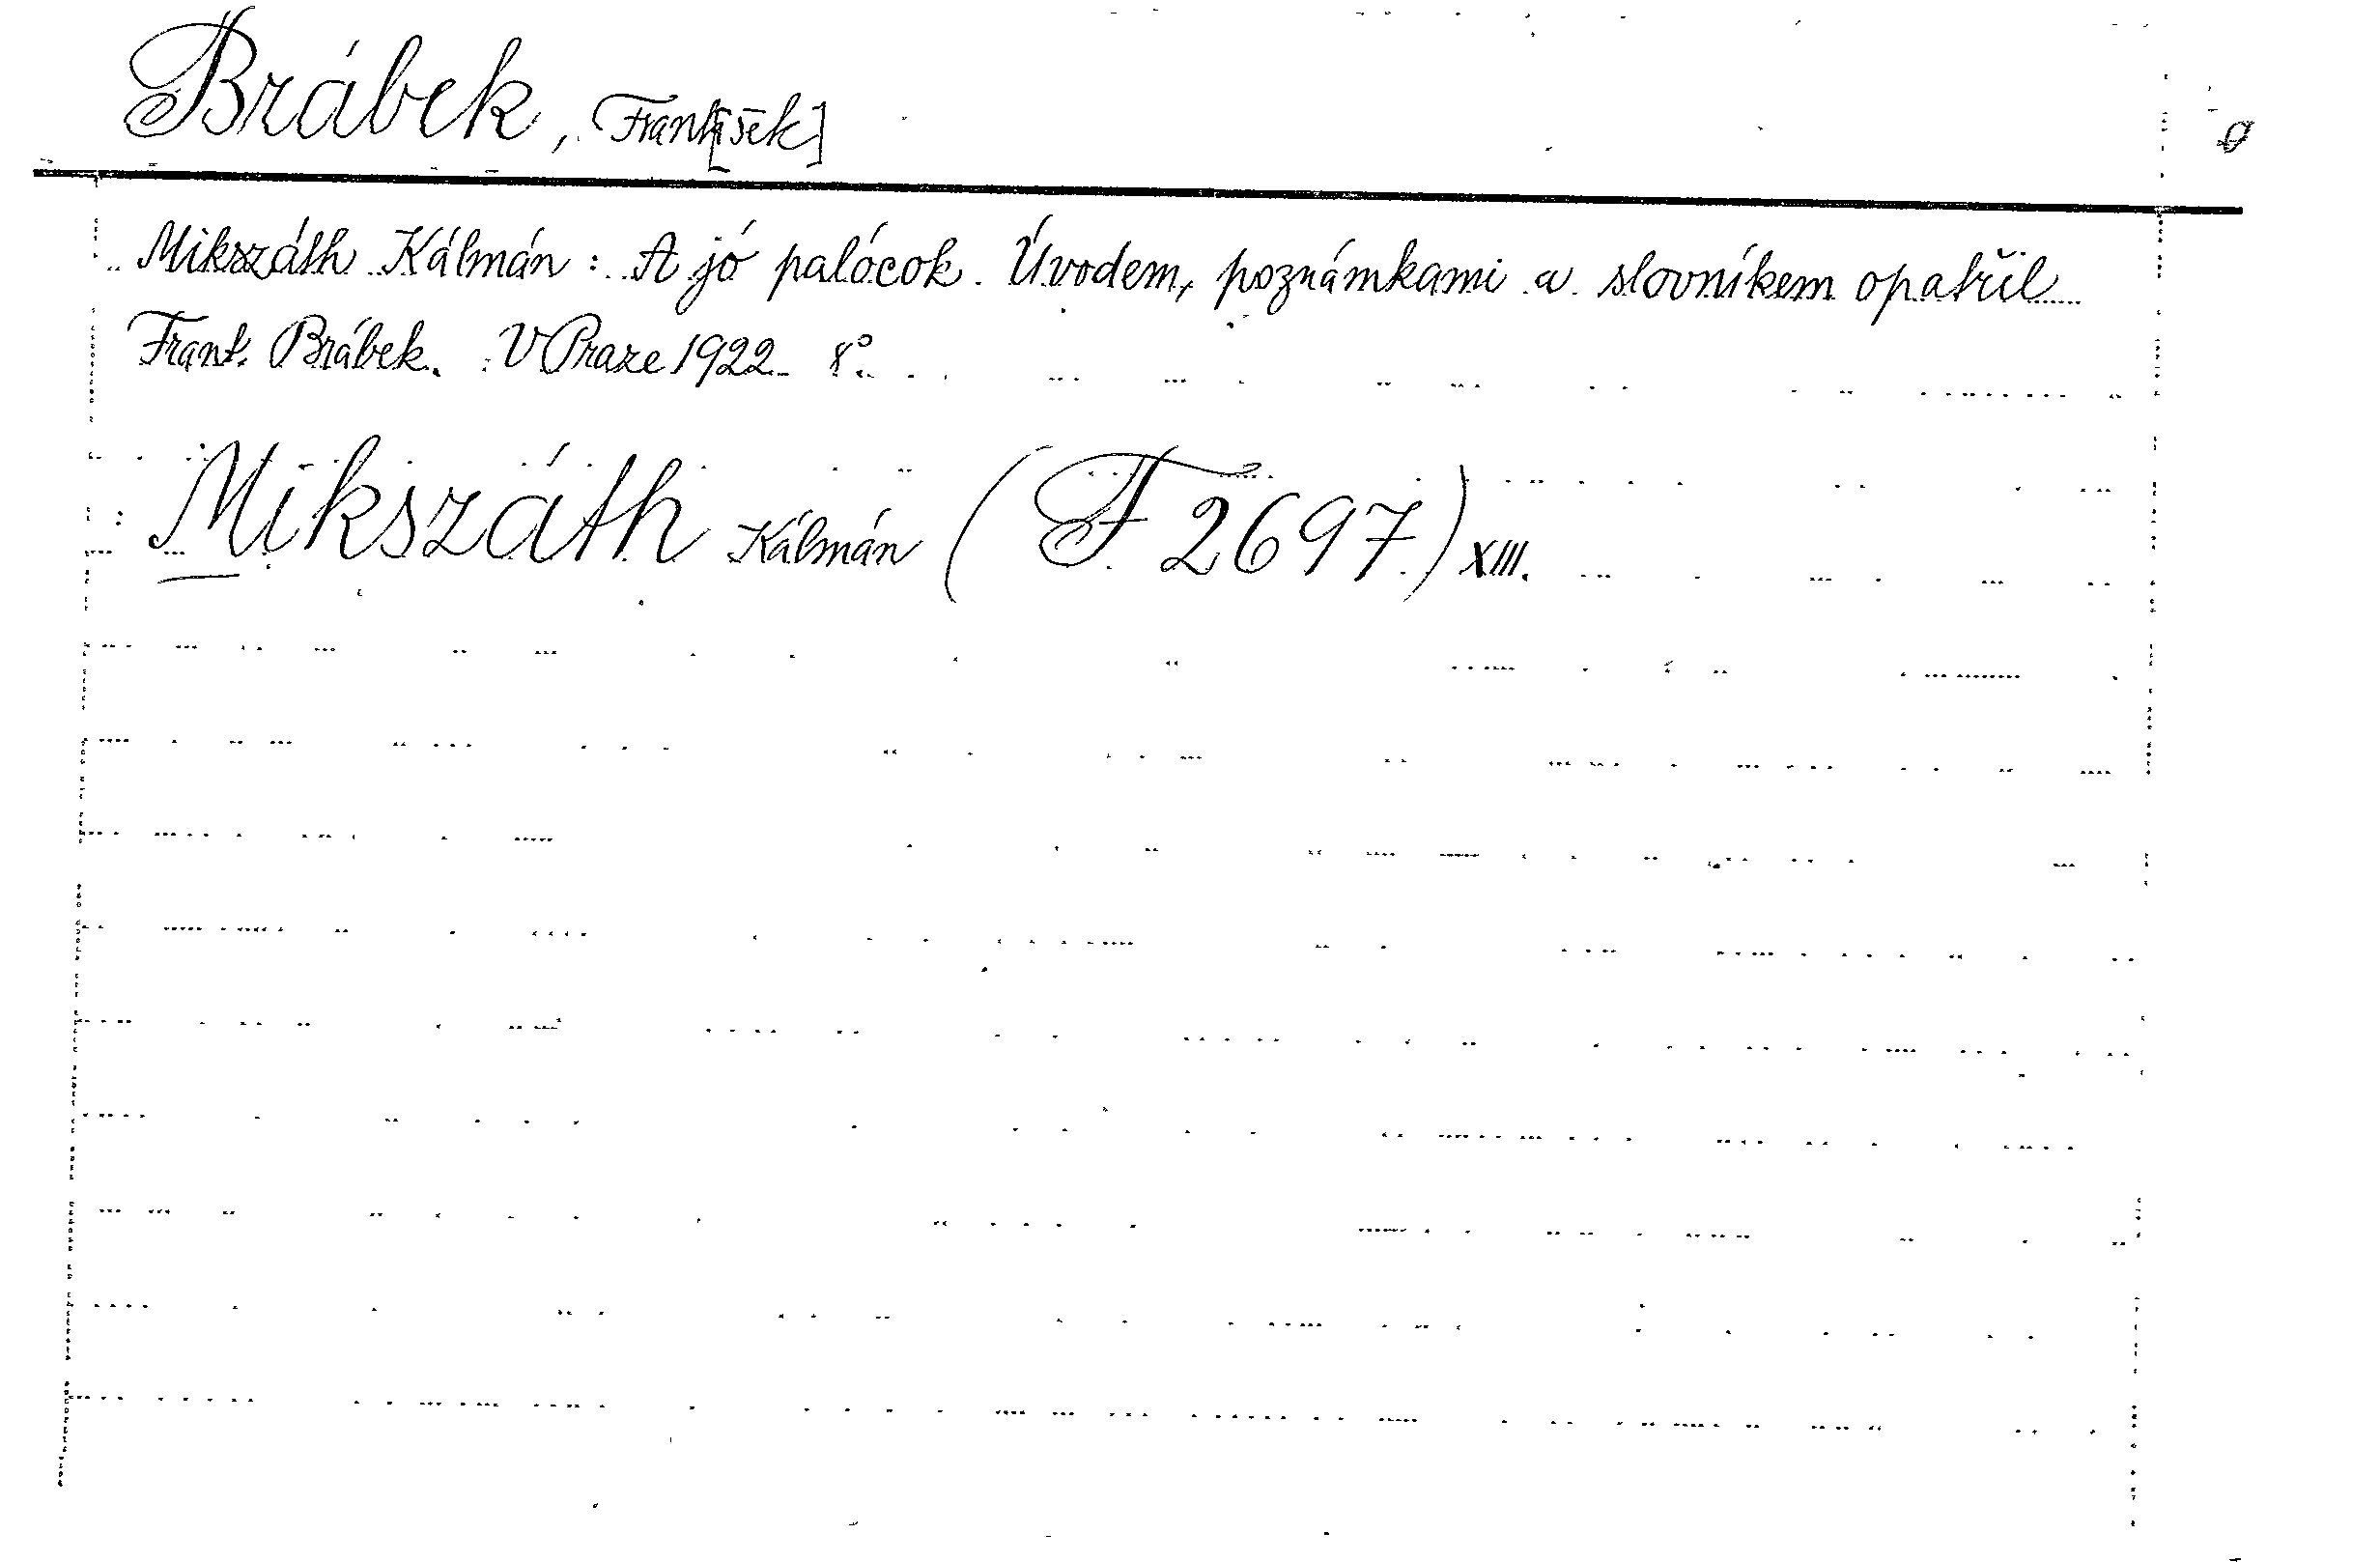 Brábek, Frant[išek]
Mikszáth Kálmán: A jó palócok. Úvodem, poznámkami a slovníkem opatřil
Frant. Brábek. V Praze 1922. 8°.
Mikszáth Kálmán (F. 2697.) XIII.